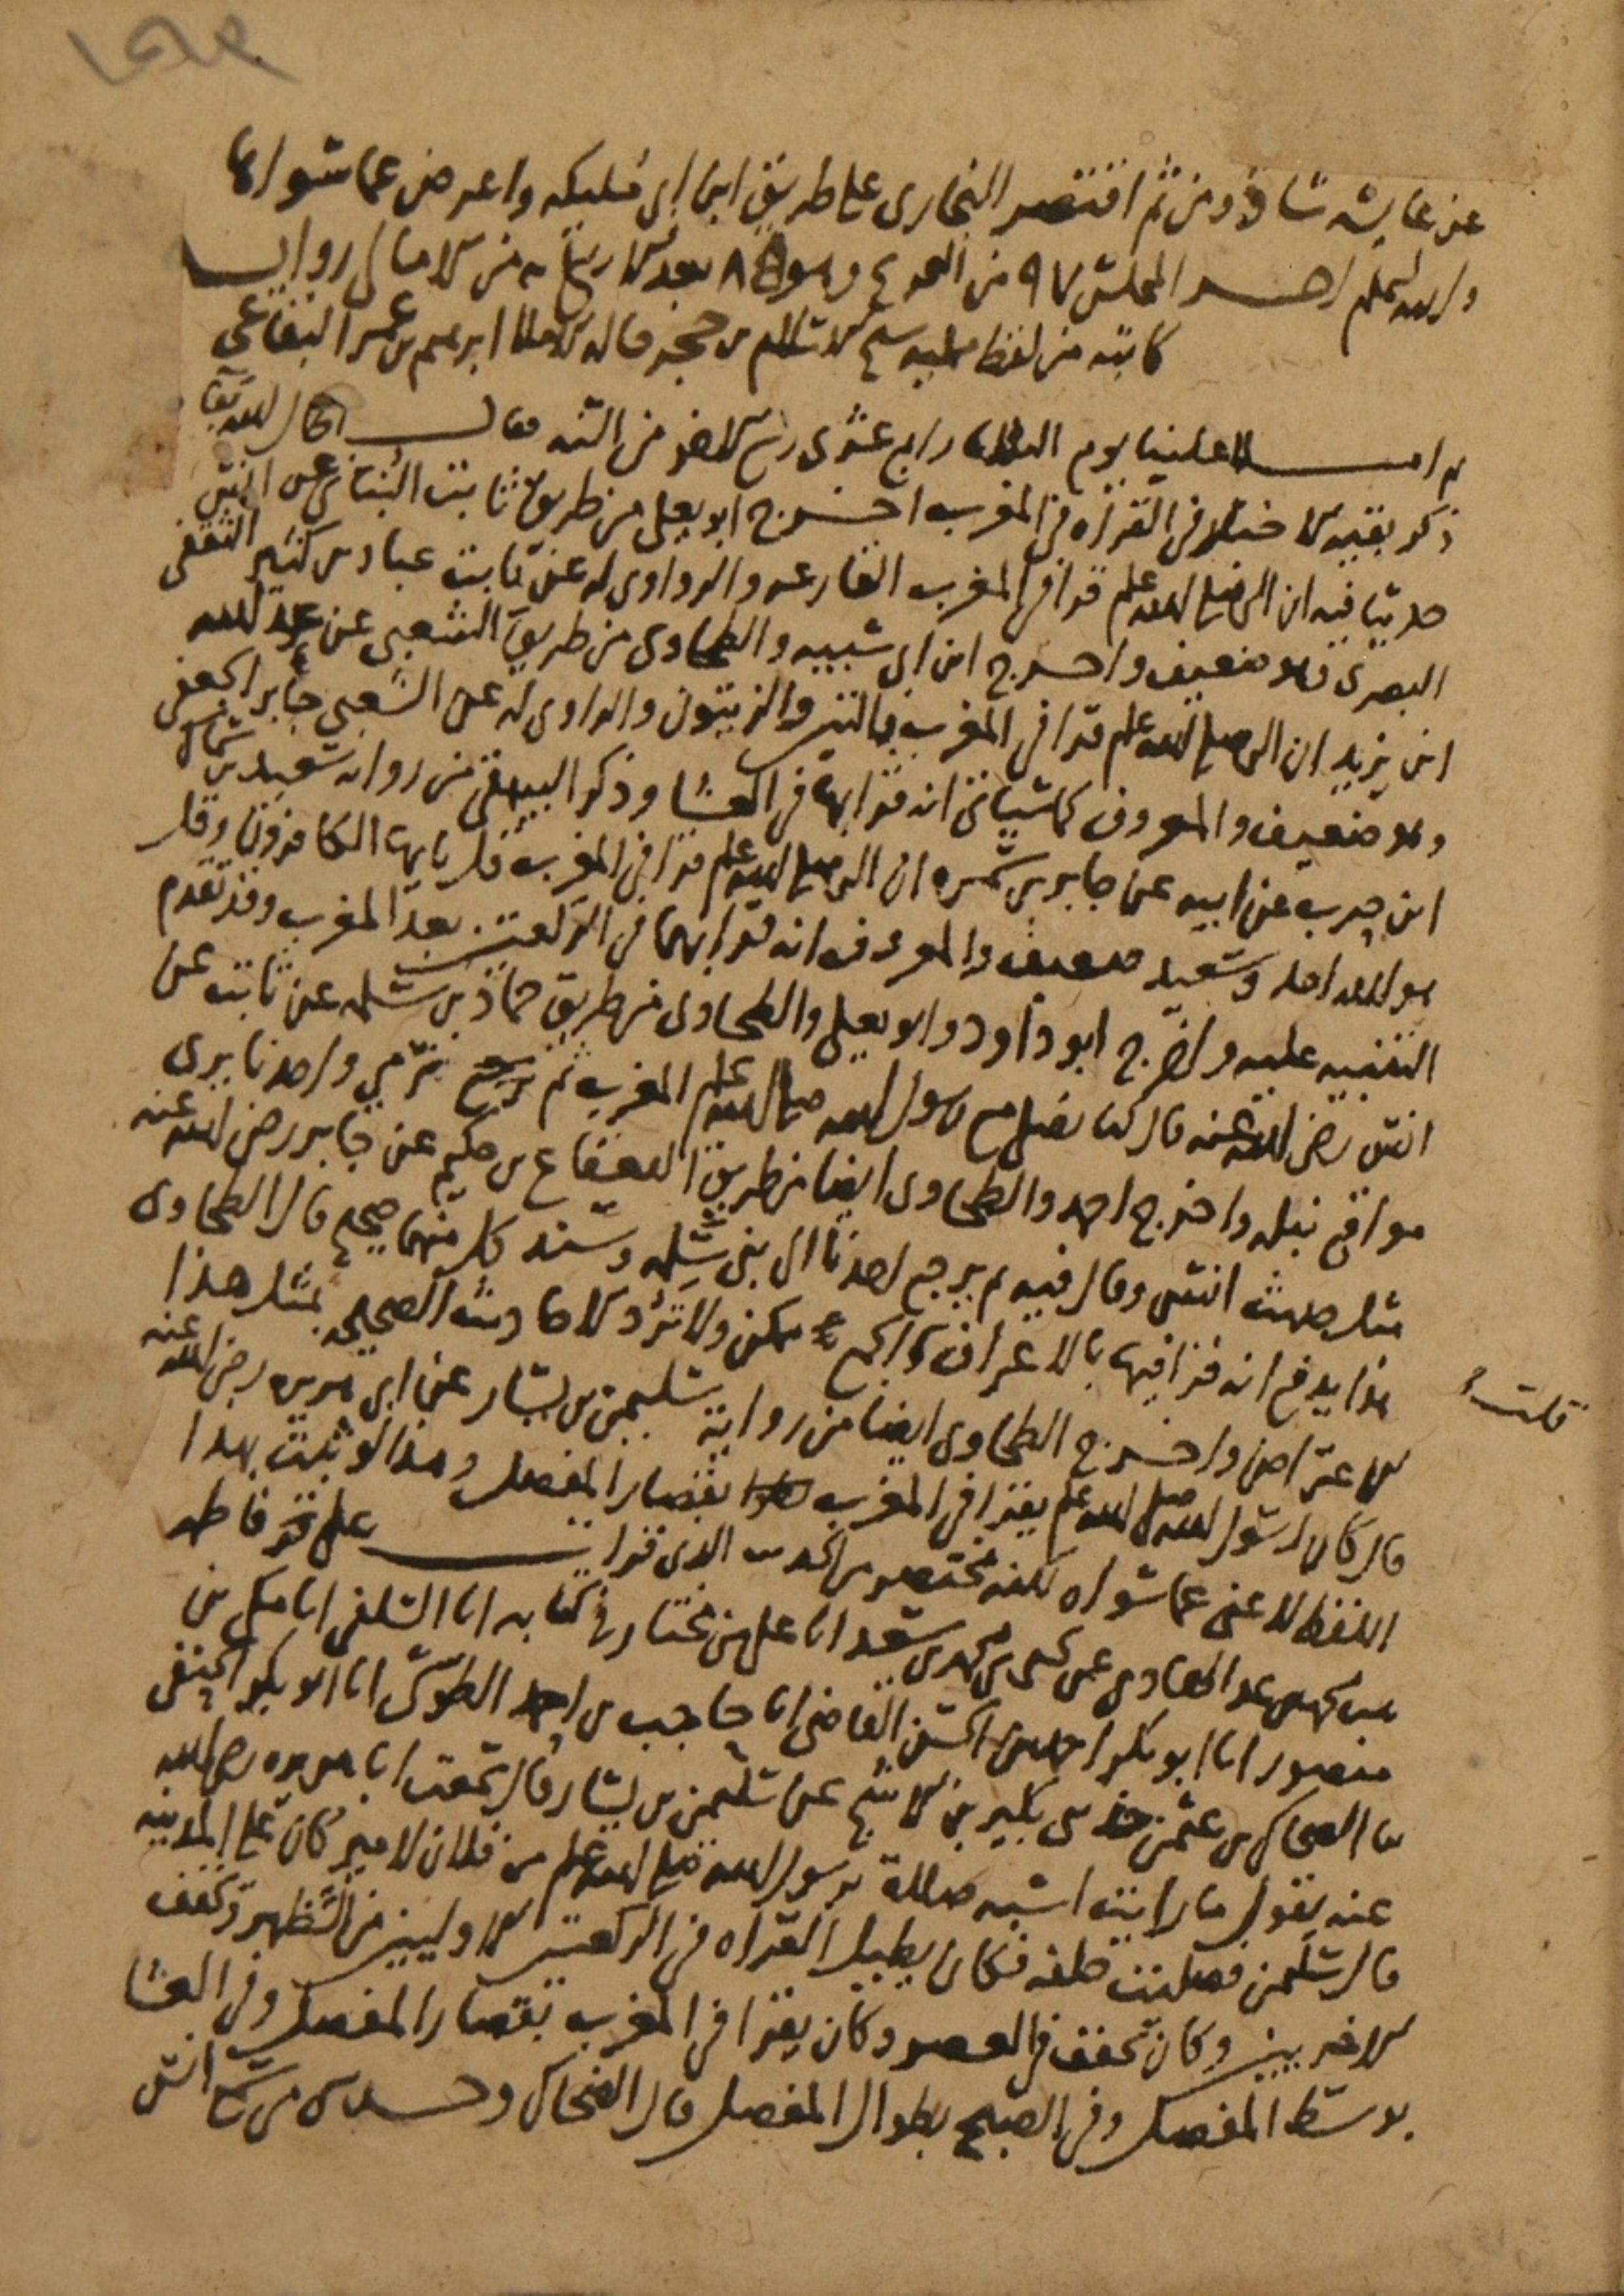 عن عايشه شاذ ومن ثم اقتصر البخارى على طريق ابن ابى مليكه واعرض عما سواها
والله اعلم اخر المجلس ٩٧ من وهو بعد من الامالى رواية
كاتبه من لفظ ممليه شيخ الاسلام بن حجر قاله ابرهيم بن عمر البقاعى
ثم املا علينا يوم الثلاثا رابع عشرى ربيع الاخر من السنه فقال
ذكر بقيه الاختلاف فى القراه فى المغرب اخرج ابو يعلى من طريق ثابت البنانى عن انس
حديثا فيه ان النبى صلى الله عليه وسلم قرا فى المغرب القارعه والراوى له عن ثابت عباد بن كثير الثقفى
البصرى وهو ضعيف واخرج ابن ابى شيبه والطحاوى من طريق الشعبى عن عبد الله
ابن يزيد ان النبى صلى الله عليه وسلم قرا فى المغرب بالتين والزيتون والراوى له عن الشعبى جابر الجعفى
وهو ضعيف والمعروف كما سياتى انه قرا بها فى العشا وذكر البيهقى من روايه سعيد بن سماك
ابن حرب عن ابيه عن جابر بن سمره ان النبى صلى الله عليه وسلم قرا فى المغرب قل يايها الكافرون وقل
هو الله احد وسعيد ضعيف والمعروف انه قرا بهما فى الركعتين بعد المغرب وقد تقدم
التنبيه عليه واخرج ابو داود وابو يعلى والطحاوى من طريق حماد بن سلمه عن ثابت عن
انس رضى الله عنه قال كنا نصلى مع رسول الله صلى الله عليه وسلم المغرب ثم نرمى واحدنا يرى
مواقع نبله واخرج احمد والطحاوى ايضا من طريق القعقاع بن حكيم عن جابر رضى الله عنه
مثل حديث انس وقال فيه ثم يرجع احدنا الى بنى سلمه وسند كل منهما صحيح قال الطحاوى
هذا يدفع انه قرا فيها بالاعراف قلت والجمع ممكن ولا ترد الاحاديث الصحيحه بمثل هذا
الاعتراض واخرج الطحاوى ايضا من رواية سليمن بن يسار عن ابى هريره رضى الله عنه
قال كان رسول الله صلى الله عليه وسلم يقرا فى المغرب بقصار المفصل وهذا لو ثبت بهذا
اللفظ لاغنى عما سواه لكنه مختصر من الحديث الذى قرات على فاطمه
بنت محمد بن عبد الهادى عن يحيى بن محمد بن سعد انا على بن مختار فى كتابه انا السلفى انا مكى بن
منصور انا ابو بكر احمد بن الحسن القاضى انا حاجب بن احمد الطوسى انا ابو بكر الحنفى
ثنا الضحاك بن عثمن حدثنى بكير بن الاشج عن سليمن بن يسار قال سمعت ابا هريره رضى الله
عنه يقول ما رايت اشبه صلاة برسول الله صلى الله عليه وسلم من فلان لامير كان على المدينه
قال سليمن فصليت خلفه فكان يطيل القراه فى الركعتين الاوليين من الظهر وتخفف
الاخريين وكان يخفف فى العصر وكان يقرا فى المغرب بقصار المفصل وفى العشا
بوسط المفصل وفى الصبح بطوال المفصل قال الضحاك وحدثنى من سمع انس